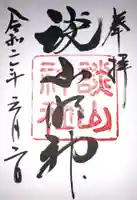 奉拝
談山明神
談山神社
令和二年六月二日